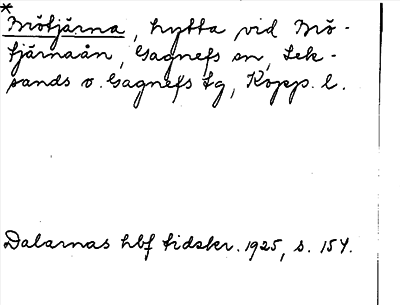 *
Mötjärna, hytta vid Mö-
tjärnaån, Gagnefs sn, Lek-
sands o. Gagnefs tg, Kopp. l.
Dalarnas hbf tidskr. 1925, s. 154.